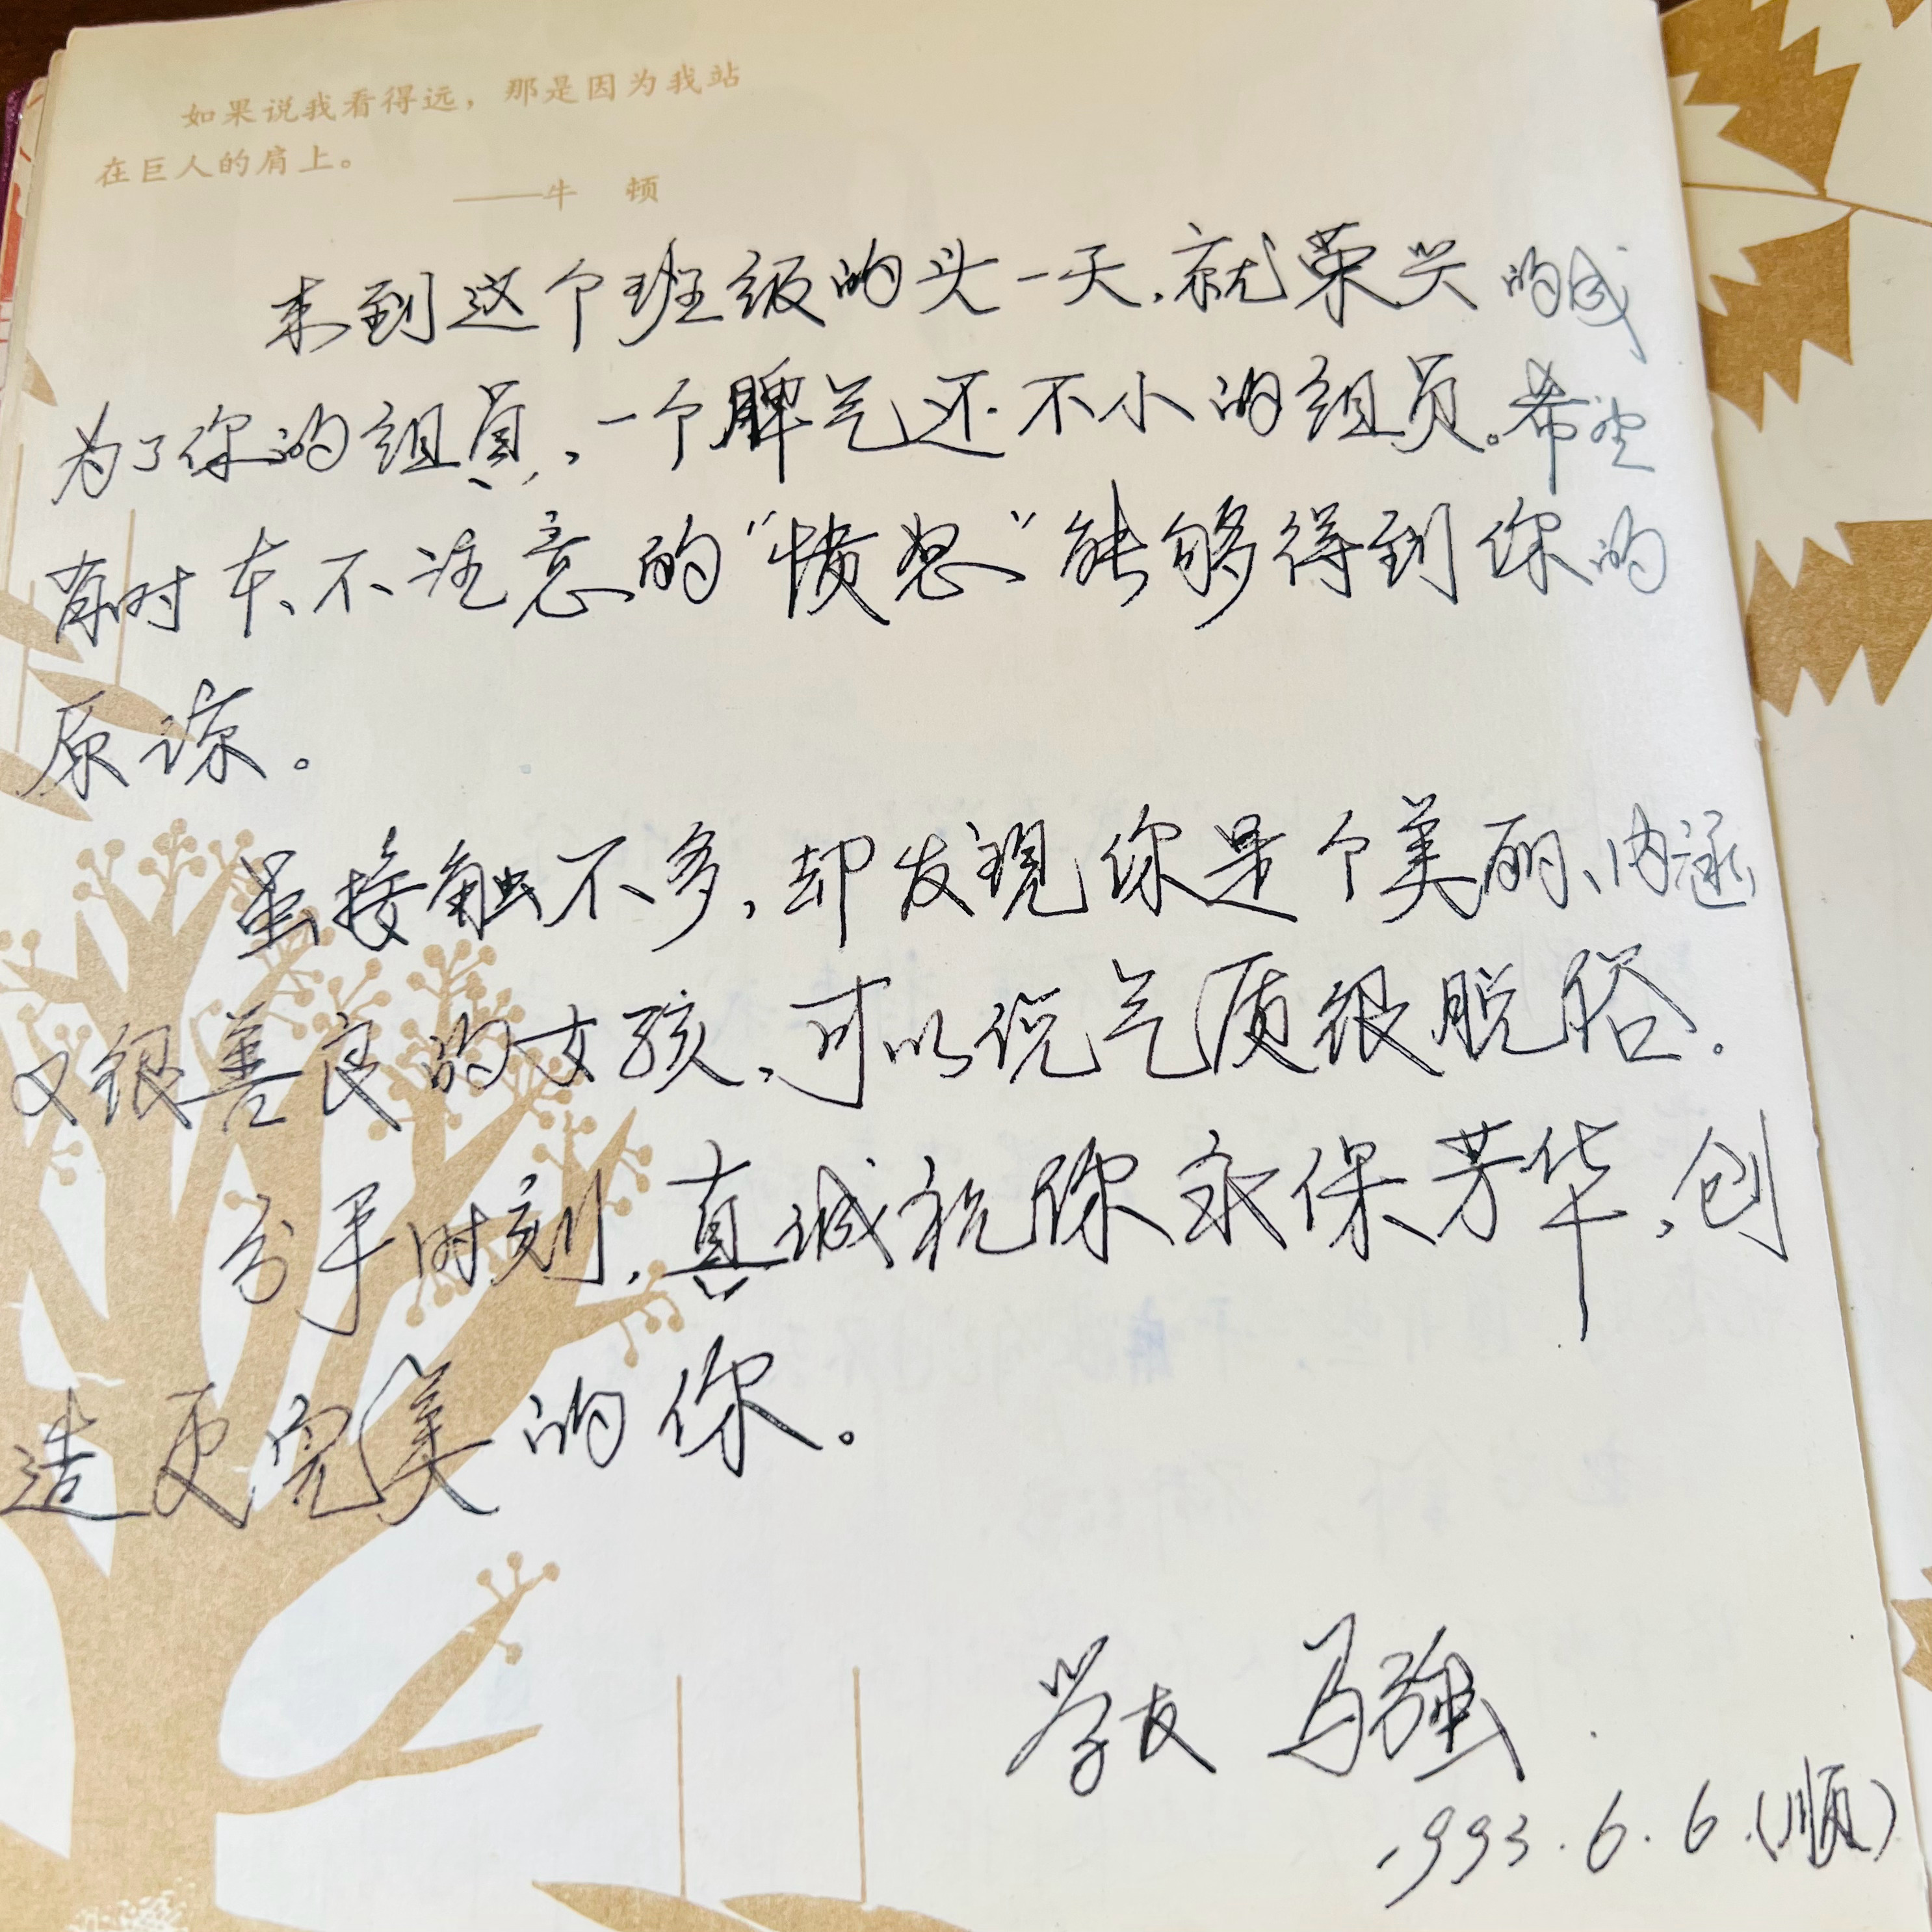 如果说我看得远，那是因为我站
在巨人的肩上。
——牛 顿
来到这个班级的头一天，就荣兴的成
为了你的组员，一个脾气还不小的组员。希望
有时在不注意的“愤怒”能够得到你的
原谅。
虽接触不多，却发现你是个美丽、内涵
又很善良的女孩，可以说气质很脱俗。
分手时刻，真诚祝你永保芳华，创
造更完美的你。
学友 马强
1993.6.6.(顺)